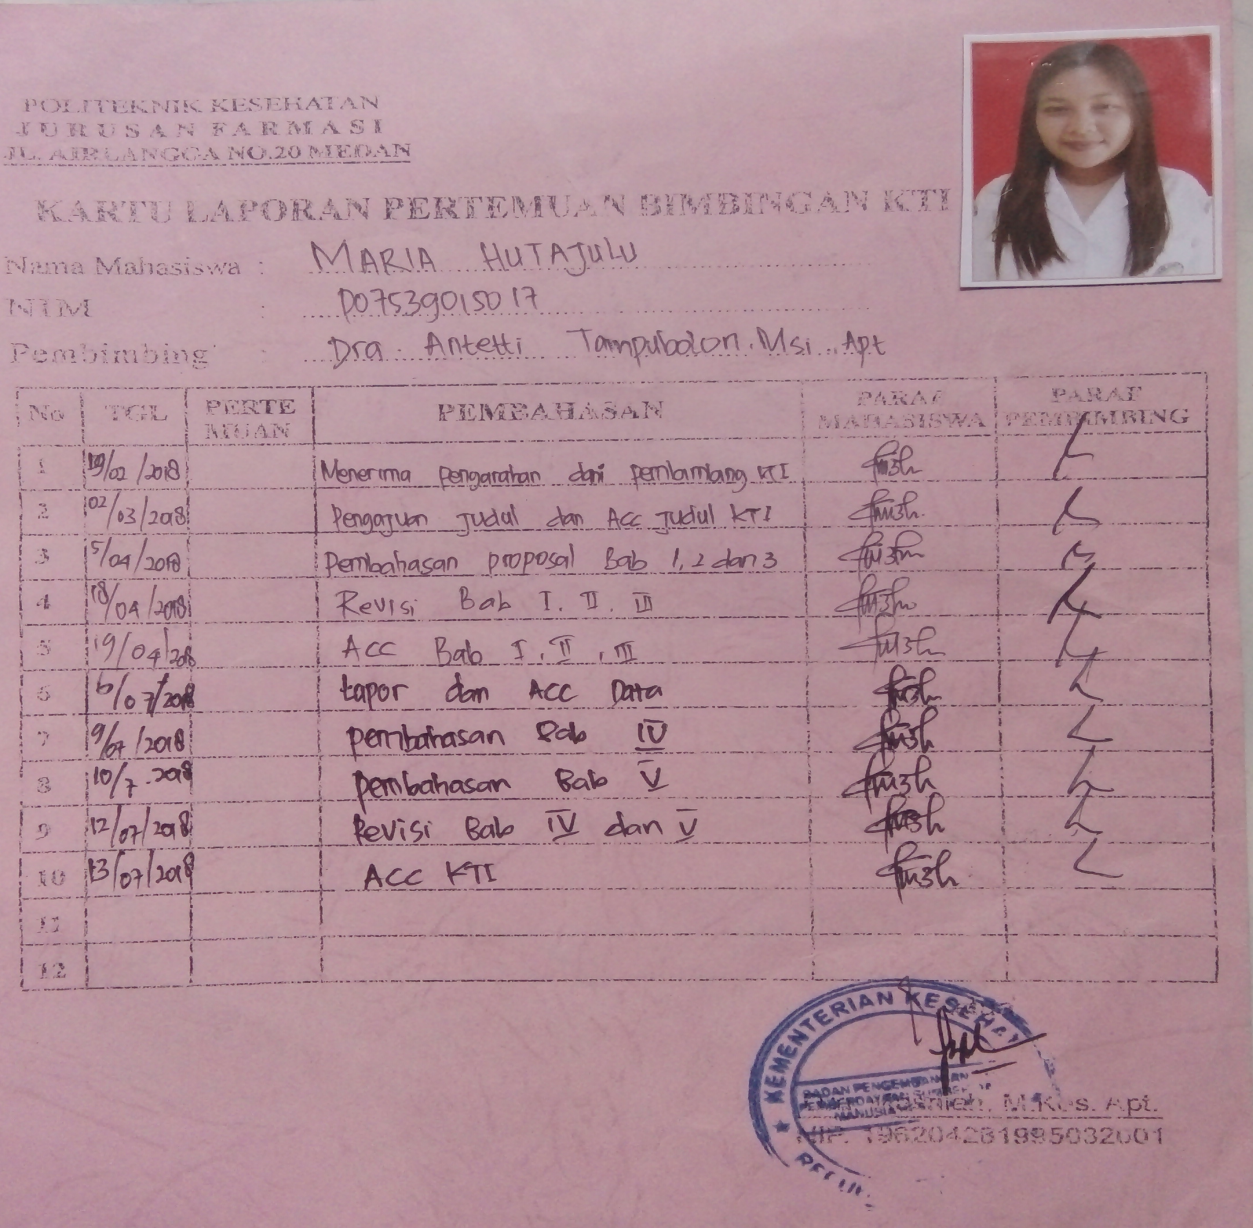 POLITEKNIK KESEHATAN
JURUSAN FARMASI
JL. AIRLANGGA NO.20 MEDAN
KARTU LAPORAN PERTEMUAN BIMBINGAN KTI
Nama Mahasiswa : MARIA HUTAJULU
NIM : P07539015017
Pembimbing : Dra. Antetti Tampubolon. Msi., Apt
No TGL PERTE MUAN PEMBAHASAN PARAF MAHASISWA PARAF PEMBIMBING
1 19/02/2018 Menerima pengarahan dari pembimbing KTI
2 02/03/2018 Pengajuan judul dan Acc judul KTI
3 5/04/2018 Pembahasan proposal Bab 1, 2 dan 3
4 18/04/2018 Revisi Bab I. II. III
5 19/04/2018 Acc Bab I, II, III
6 6/07/2018 Lapor dan Acc Data
7 9/07/2018 pembahasan Bab IV
8 10/7.2018 pembahasan Bab V
9 12/07/2018 Revisi Bab IV dan V
10 13/07/2018 Acc KTI
11
12
KEMENTERIAN KESEHA
BADAN PENGEMBANGAN
PEMBERDAYAAN
MANUSIA
M.Kes. Apt.
NIP. 196204281995032001